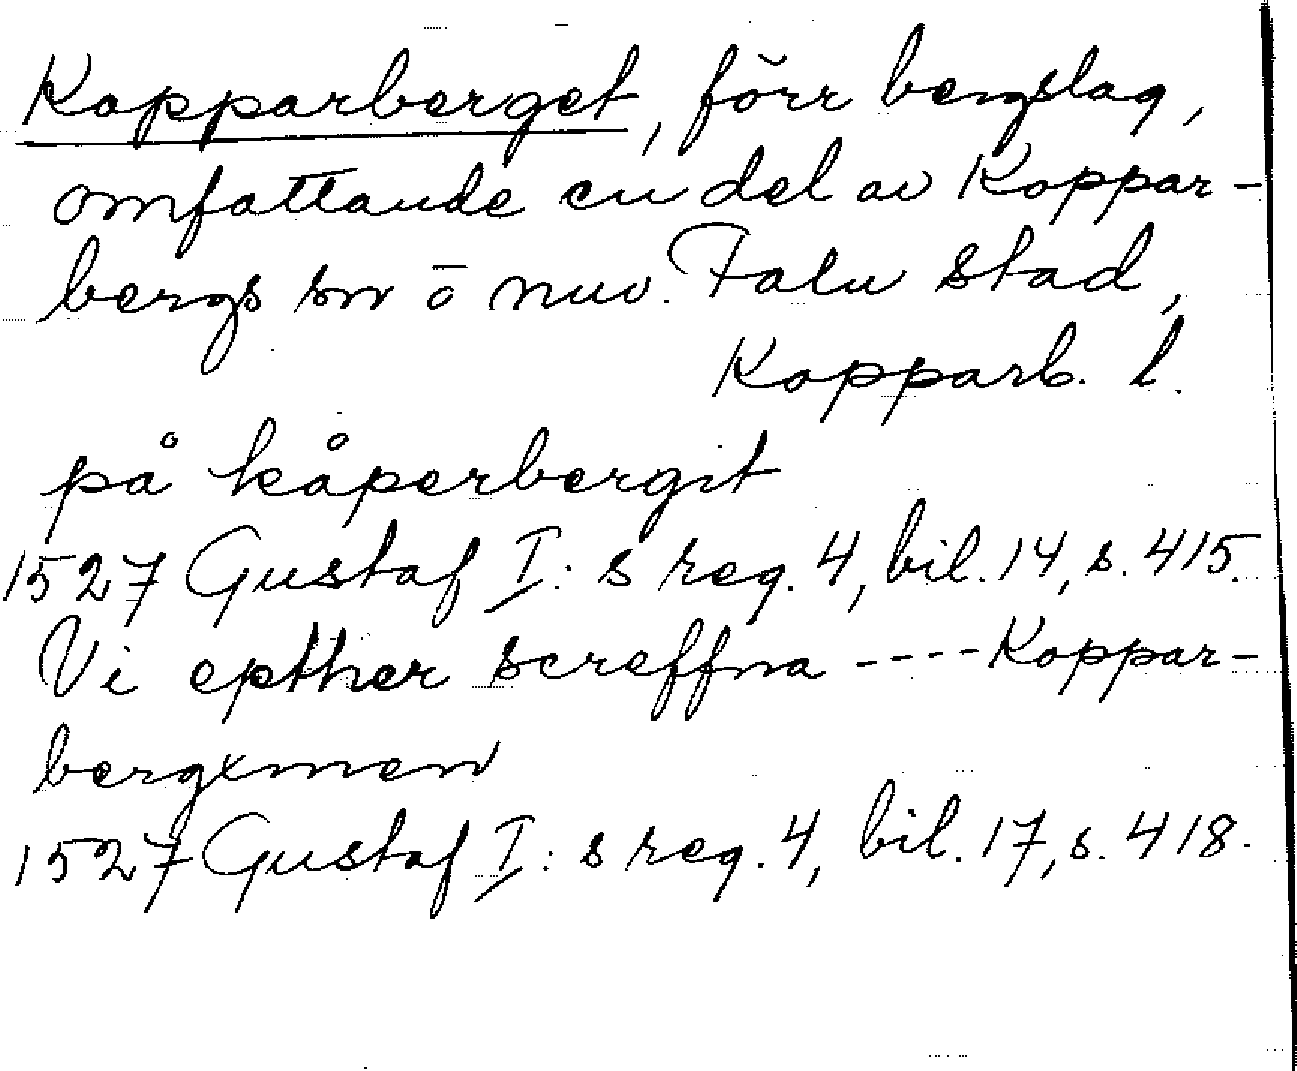 Kopparberget, förr bergslag,
omfattande en del av Koppar-
bergs sn o nuv. Falu stad,
Kopparb. l.
på kåperbergit
1527 Gustaf I: s reg. 4, bil. 14, s. 415.
Vi epther screffna ---- Koppar-
bergxmen
1527 Gustaf I: s reg. 4, bil. 17, s. 418.